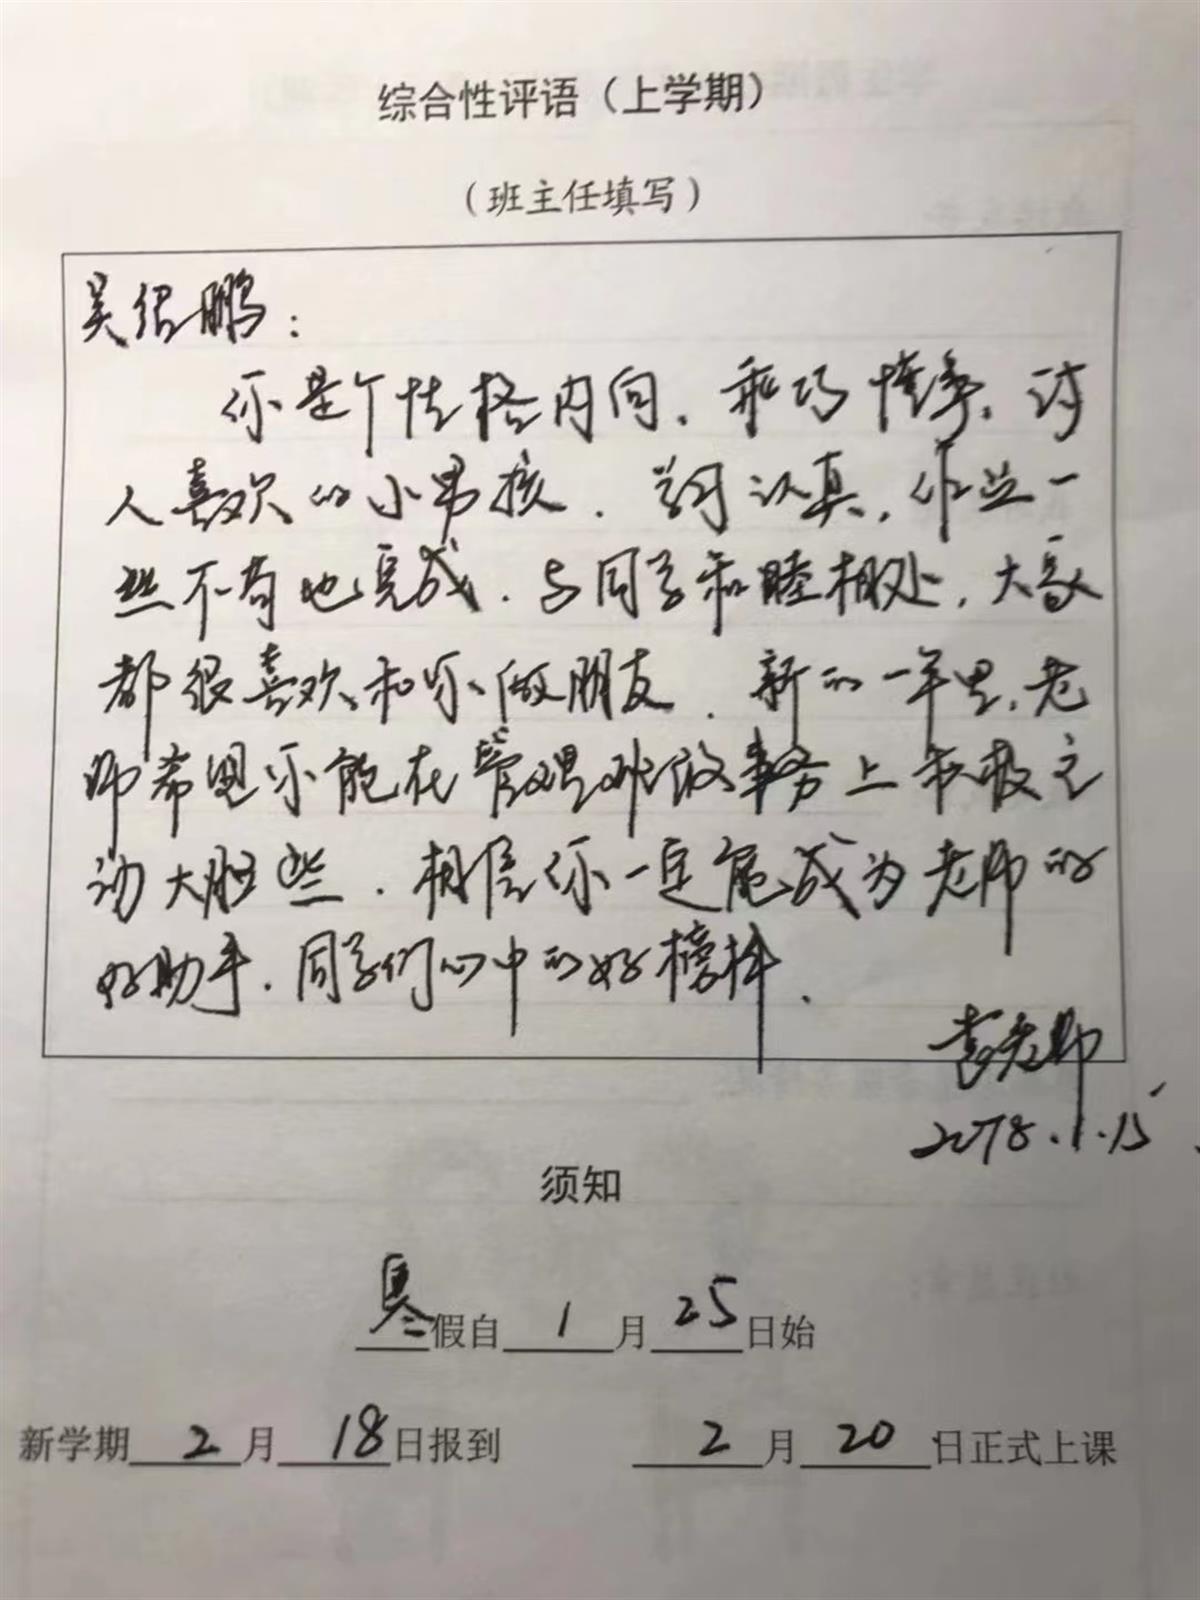 综合性评语（上学期）
（班主任填写）
吴绍鹏：
你是个性格内向、乖巧懂事、讨
人喜欢的小男孩．学习认真，作业一
丝不苟地完成．与同学和睦相处，大家
都很喜欢和你做朋友．新的一年里，老
师希望你能在管理班级事务上积极主
动大胆些．相信你一定能成为老师的
好助手．同学们心中的好榜样．
老师
2018.1.15
须知
寒假自1月25日始
新学期2月18日报到 2月20日正式上课